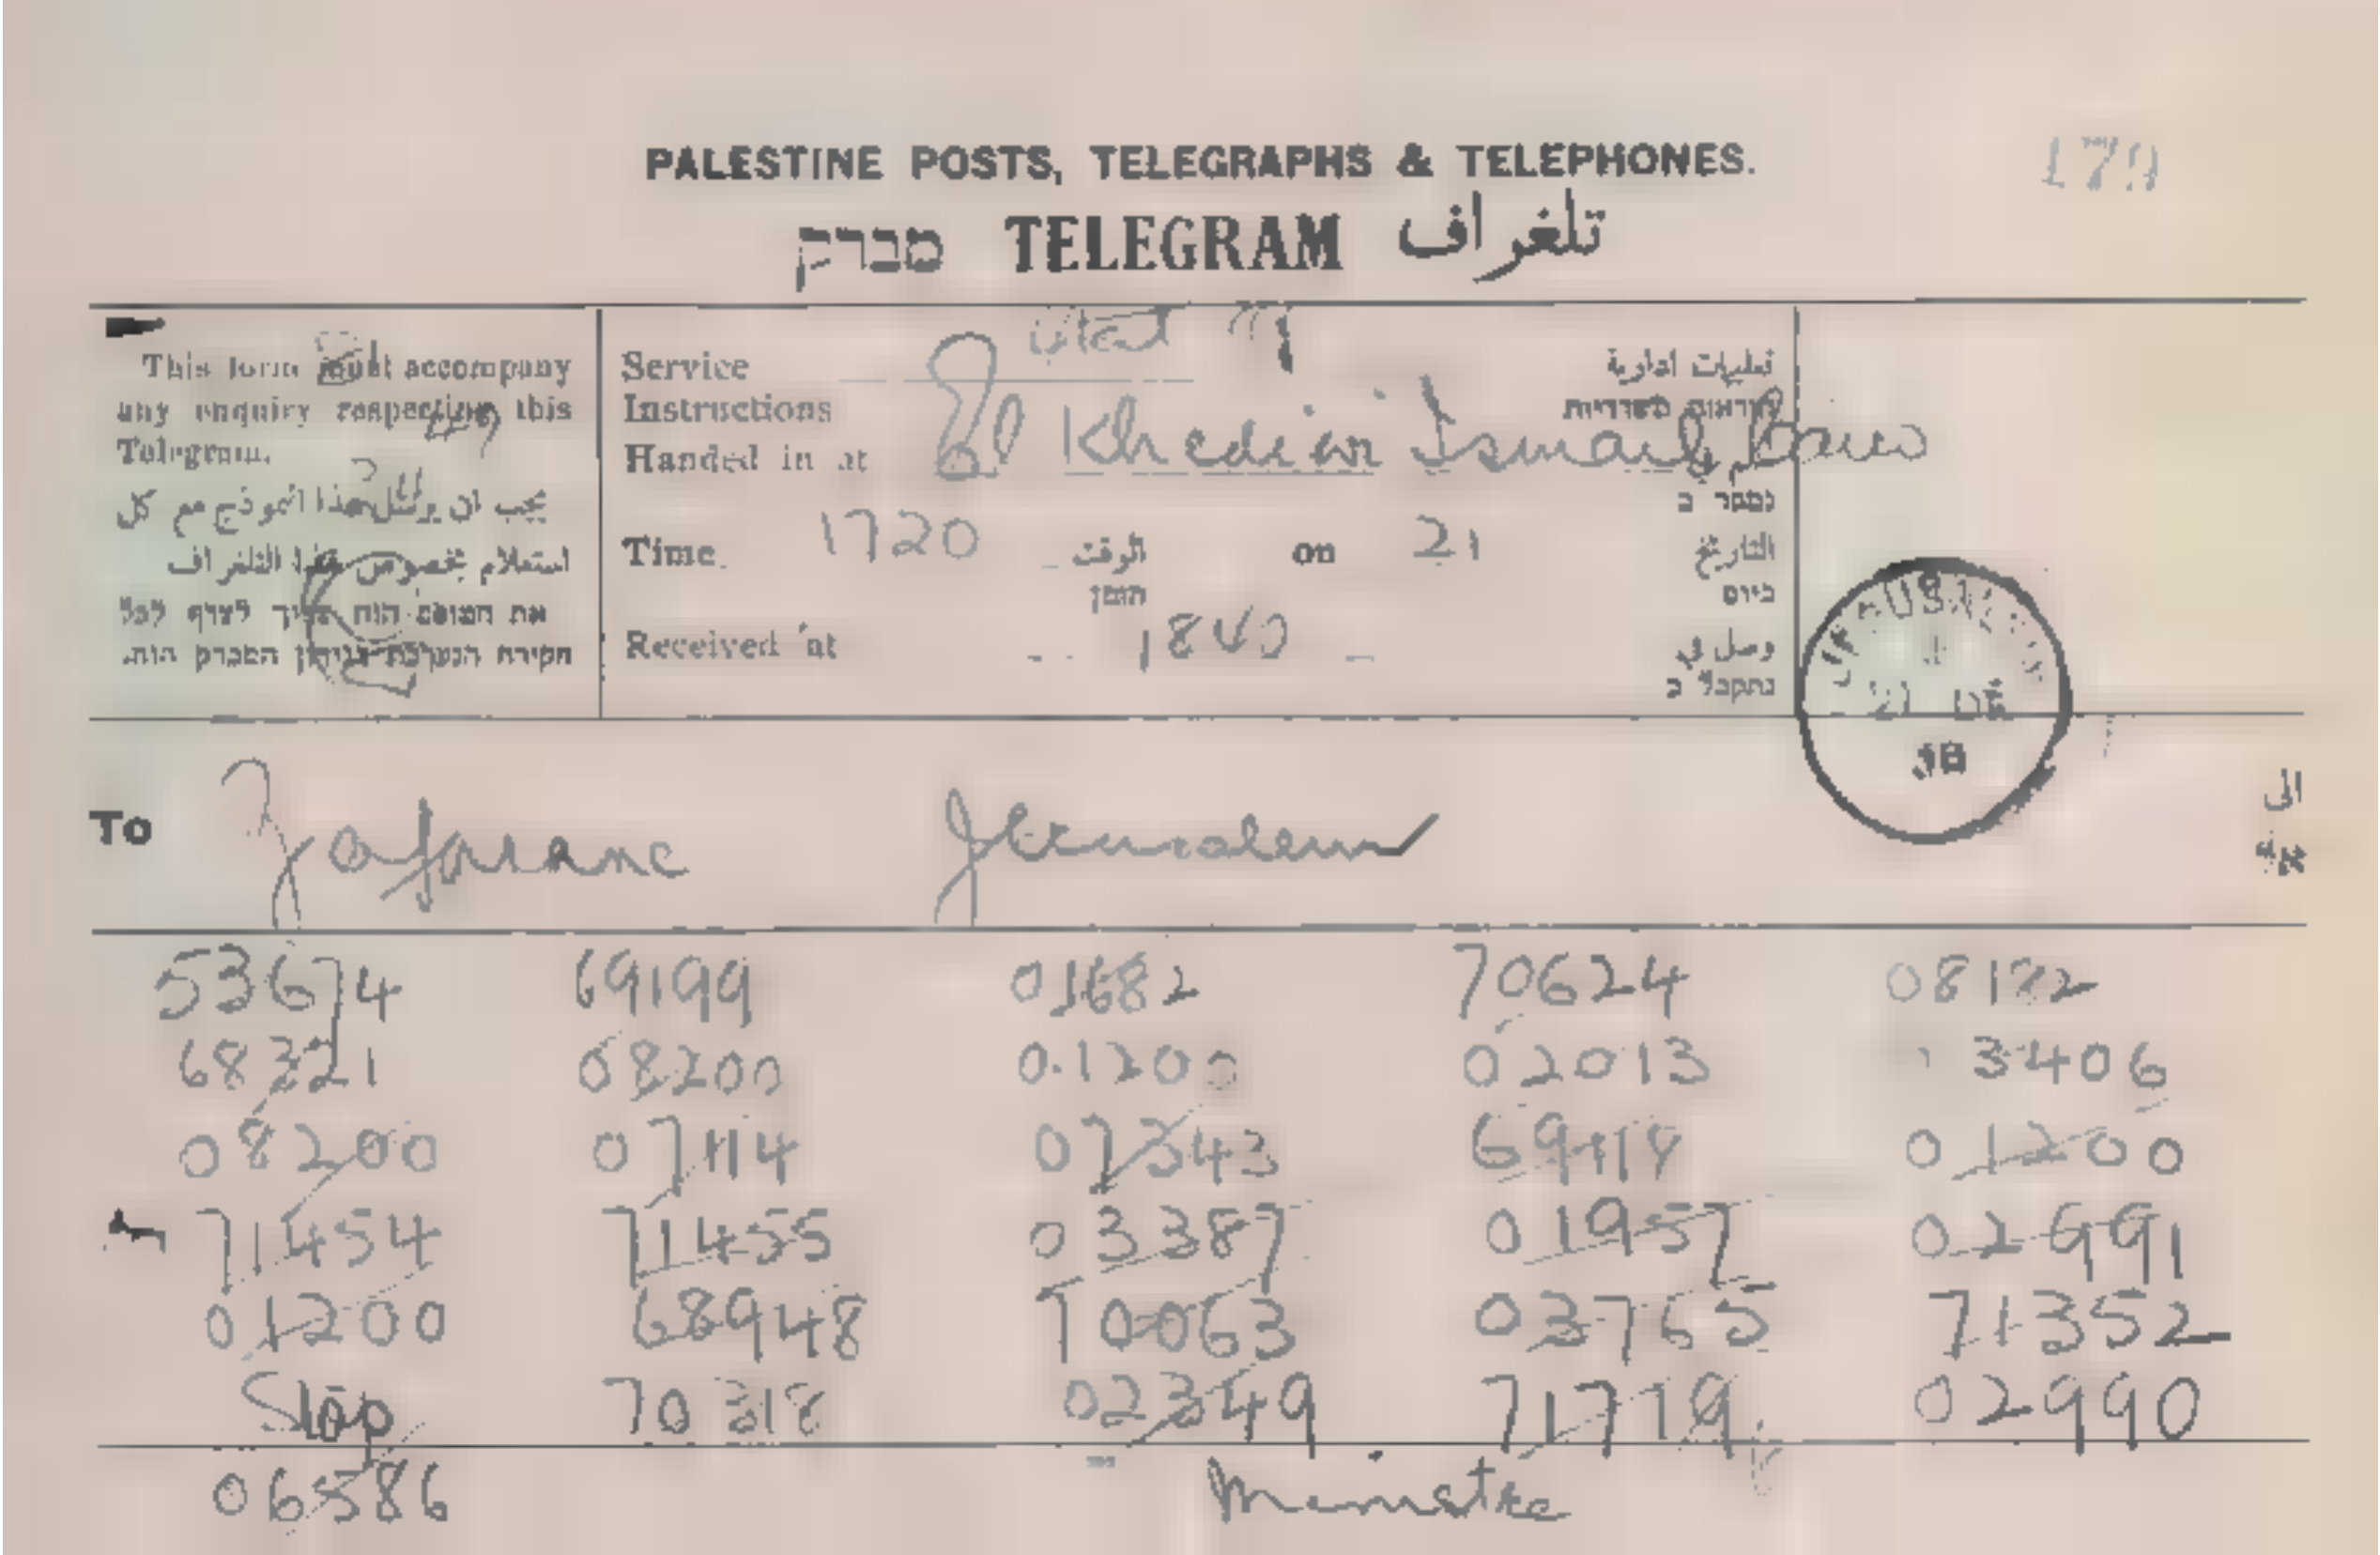 PALESTINE POSTS, TELEGRAPHS & TELEPHONES.
179
מברק TELEGRAM تلغراف
This form must accompany
any enquiry respecting this
Telegram.
يجب ان يرسل هذا النموذج مع كل
استعلام بخصوص هذا التلغراف
את הטופס הזה צריך לצרף לכל
חקירה הנערכת בנידון המברק הזה.
Service
Instructions
تعليمات ادارية
הוראות משרדיות
Handed in at Khedive Ismail Cairo
נמסר ב
Time 1720 الوقت on 21 التاريخ
הזמן ביום
Received at 1840 وصل في
נתקבל ב
JERUSALEM
21 DE
3B
To Zafarane Jerusalem الى
53674 69199 01682 70624 08182
68321 08200 01200 02013 3406
08200 07114 07343 69418 01200
71454 71455 03387 01957 02991
01200 68948 70063 03765 71352
Stop 70318 02349 71719 02990
06586 Ministre